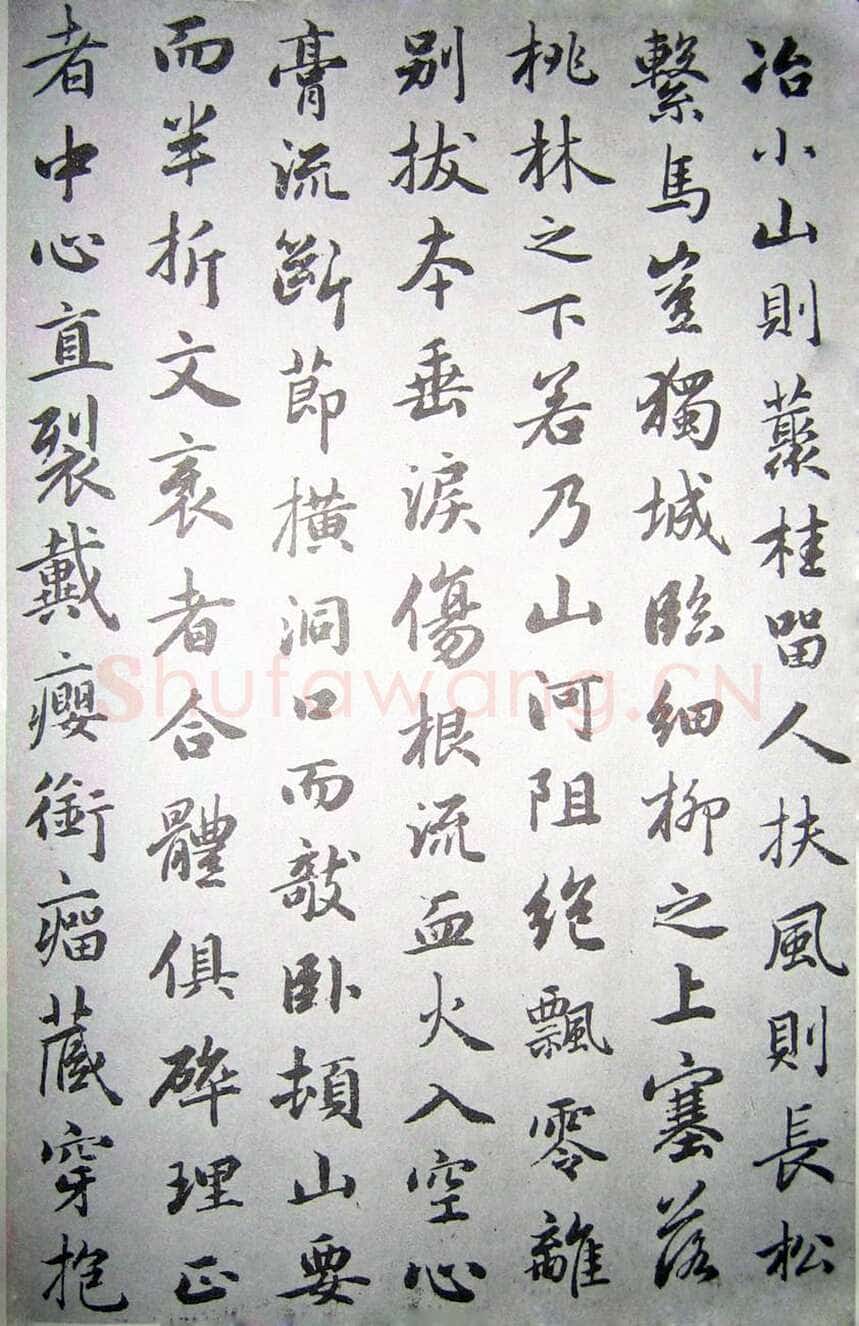 冶小山則藂桂留人扶風則長松
繫馬豈獨城臨細柳之上塞落
桃林之下若乃山河阻絕飄零離
別拔本垂淚傷根流血火入空心
膏流斷節橫洞口而敧臥頓山要
而半折文袤者合體俱碎理正
者中心直裂戴癭銜瘤藏穿抱
Shufawang.CN